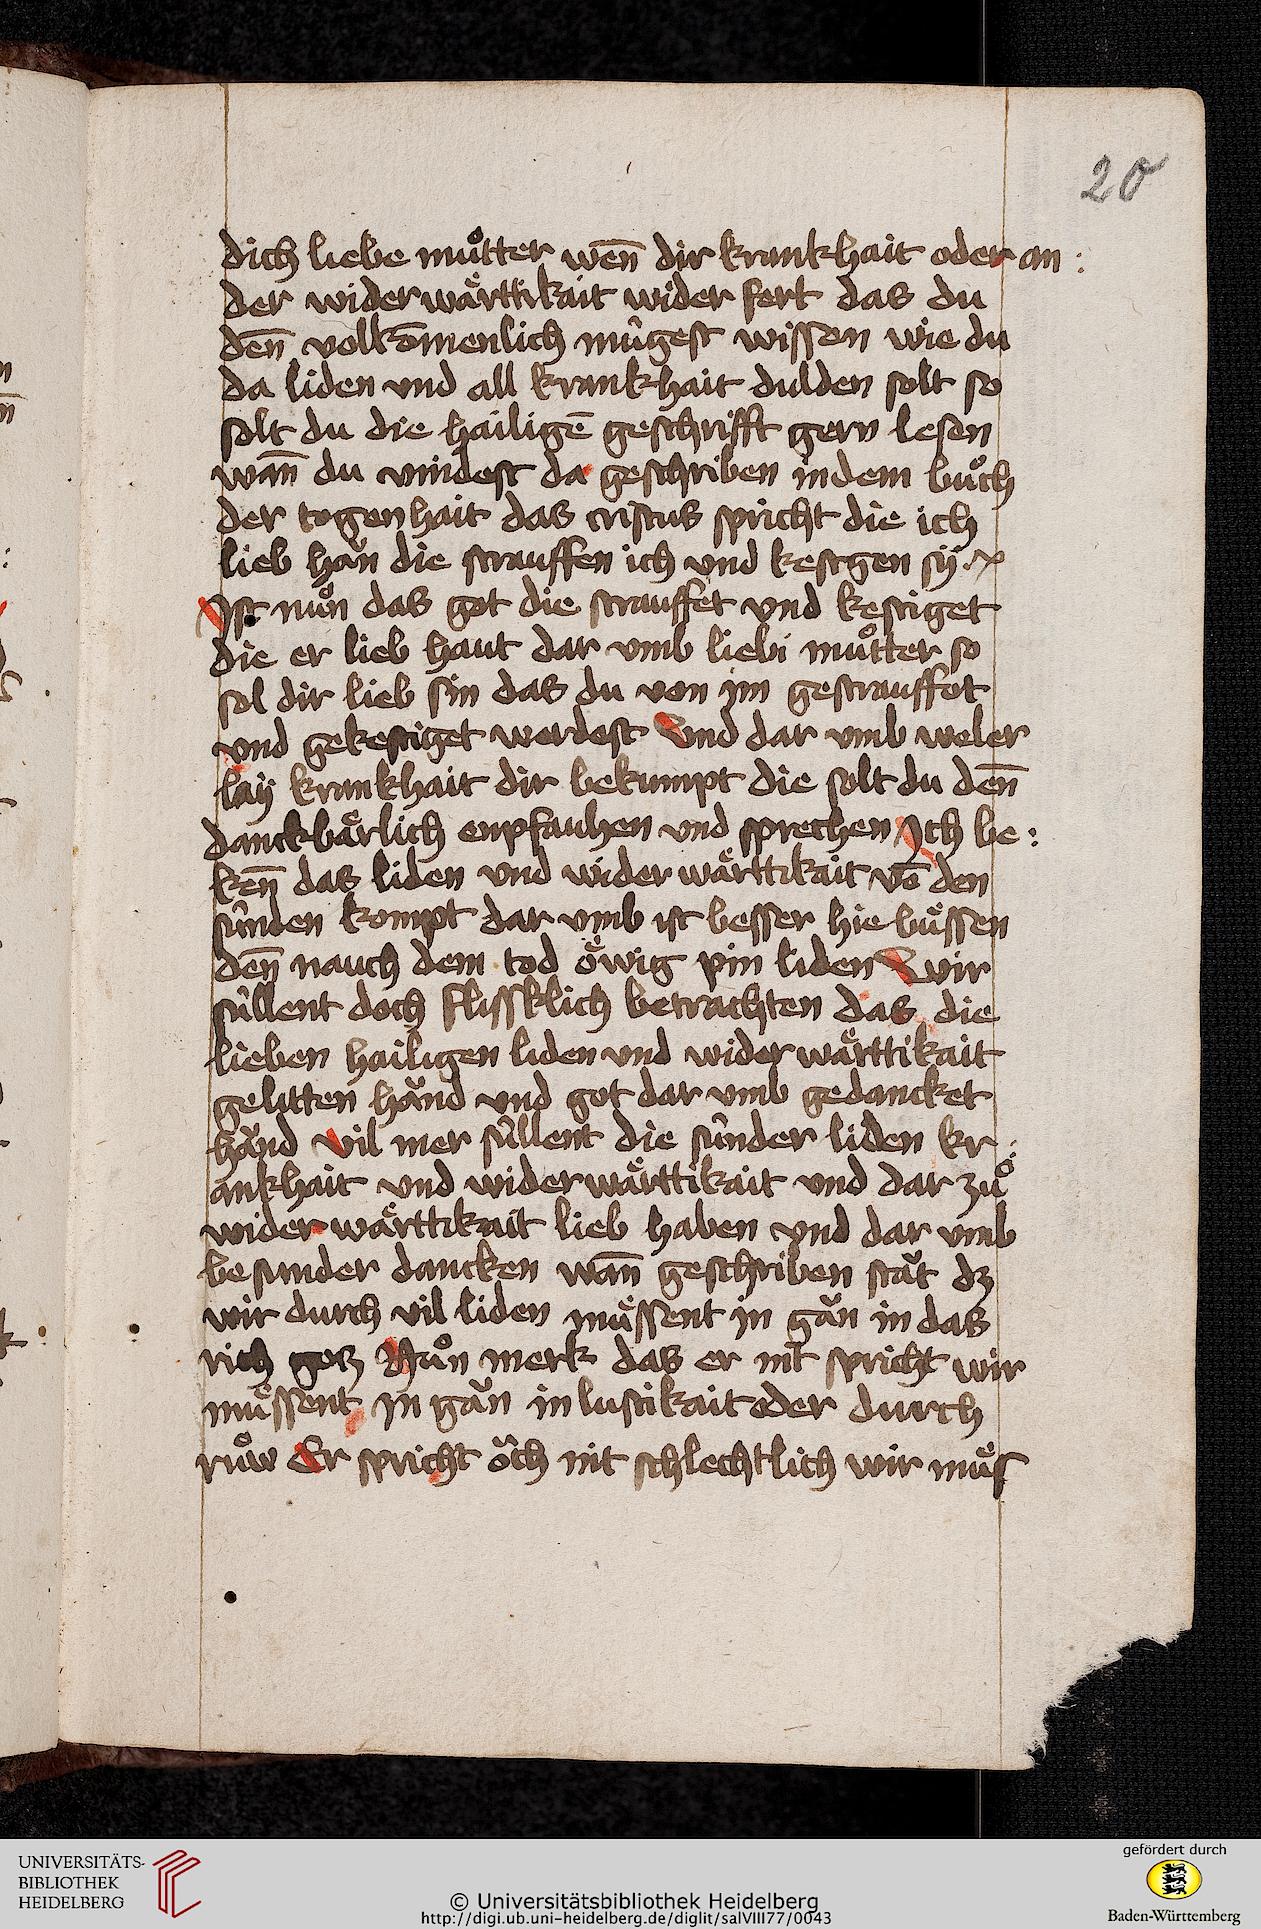 20
dich liebe muͦtter wen̄ dir krankhait oder an :
der widerwaͤrttikait wider fert das du
den̄ volkōmenlich muͤgest wissen wie du
da liden vnd all krankhait dulden solt so
solt du die hailigē geschrifft gern lesen
wan̄ du vindest da geschriben in dem buͦch
der togenhait das cristus spricht die ich
lieb haͮn die strauffen ich vnd kestgen sÿ
Ist nuͦn das got die strauffet vnd kestiget
die er lieb haut dar vmb liebi muͦtter so
sol dir lieb sin das du von im gestrauffet
vnd gekestiget werdest Vnd dar vmb weler
laÿ krankhait dir bekumpt die solt du den̄
danckbaͤrlich enpfauhen vnd sprechen Ich be :
ken̄ das liden vnd widerwaͤrttikait vō den
suͤnden kompt dar vmb ist besser hie buͤssen
den̄ nauch dem tod oͤwig pin liden Wir
suͤllent doch flissklich betrachten das die
lieben hailigen liden vnd widerwaͤrttikait
gelitten haͮnd vnd got dar vmb gedancket
haͮnd vil mer suͤllent die suͤnder liden kr :
ankhait vnd widerwaͤrttikait vnd dar zuͦ
widerwaͤrttikait lieb haben vnd dar vmb
besunder dancken wan̄ geschriben staͮt dz
wir durch vil liden muͤssent in gaͮn in das
rich gotz Nuͦn merk das er nit spricht wir
muͤssent in gaͮn in lustikait oder durch
ruͦw Er spricht oͮch nit schlechtlich wir muͤs
UNIVERSITÄTS-
BIBLIOTHEK
HEIDELBERG
© Universitätsbibliothek Heidelberg
http://digi.ub.uni-heidelberg.de/diglit/salVIII77/0043
gefördert durch
Baden-Württemberg